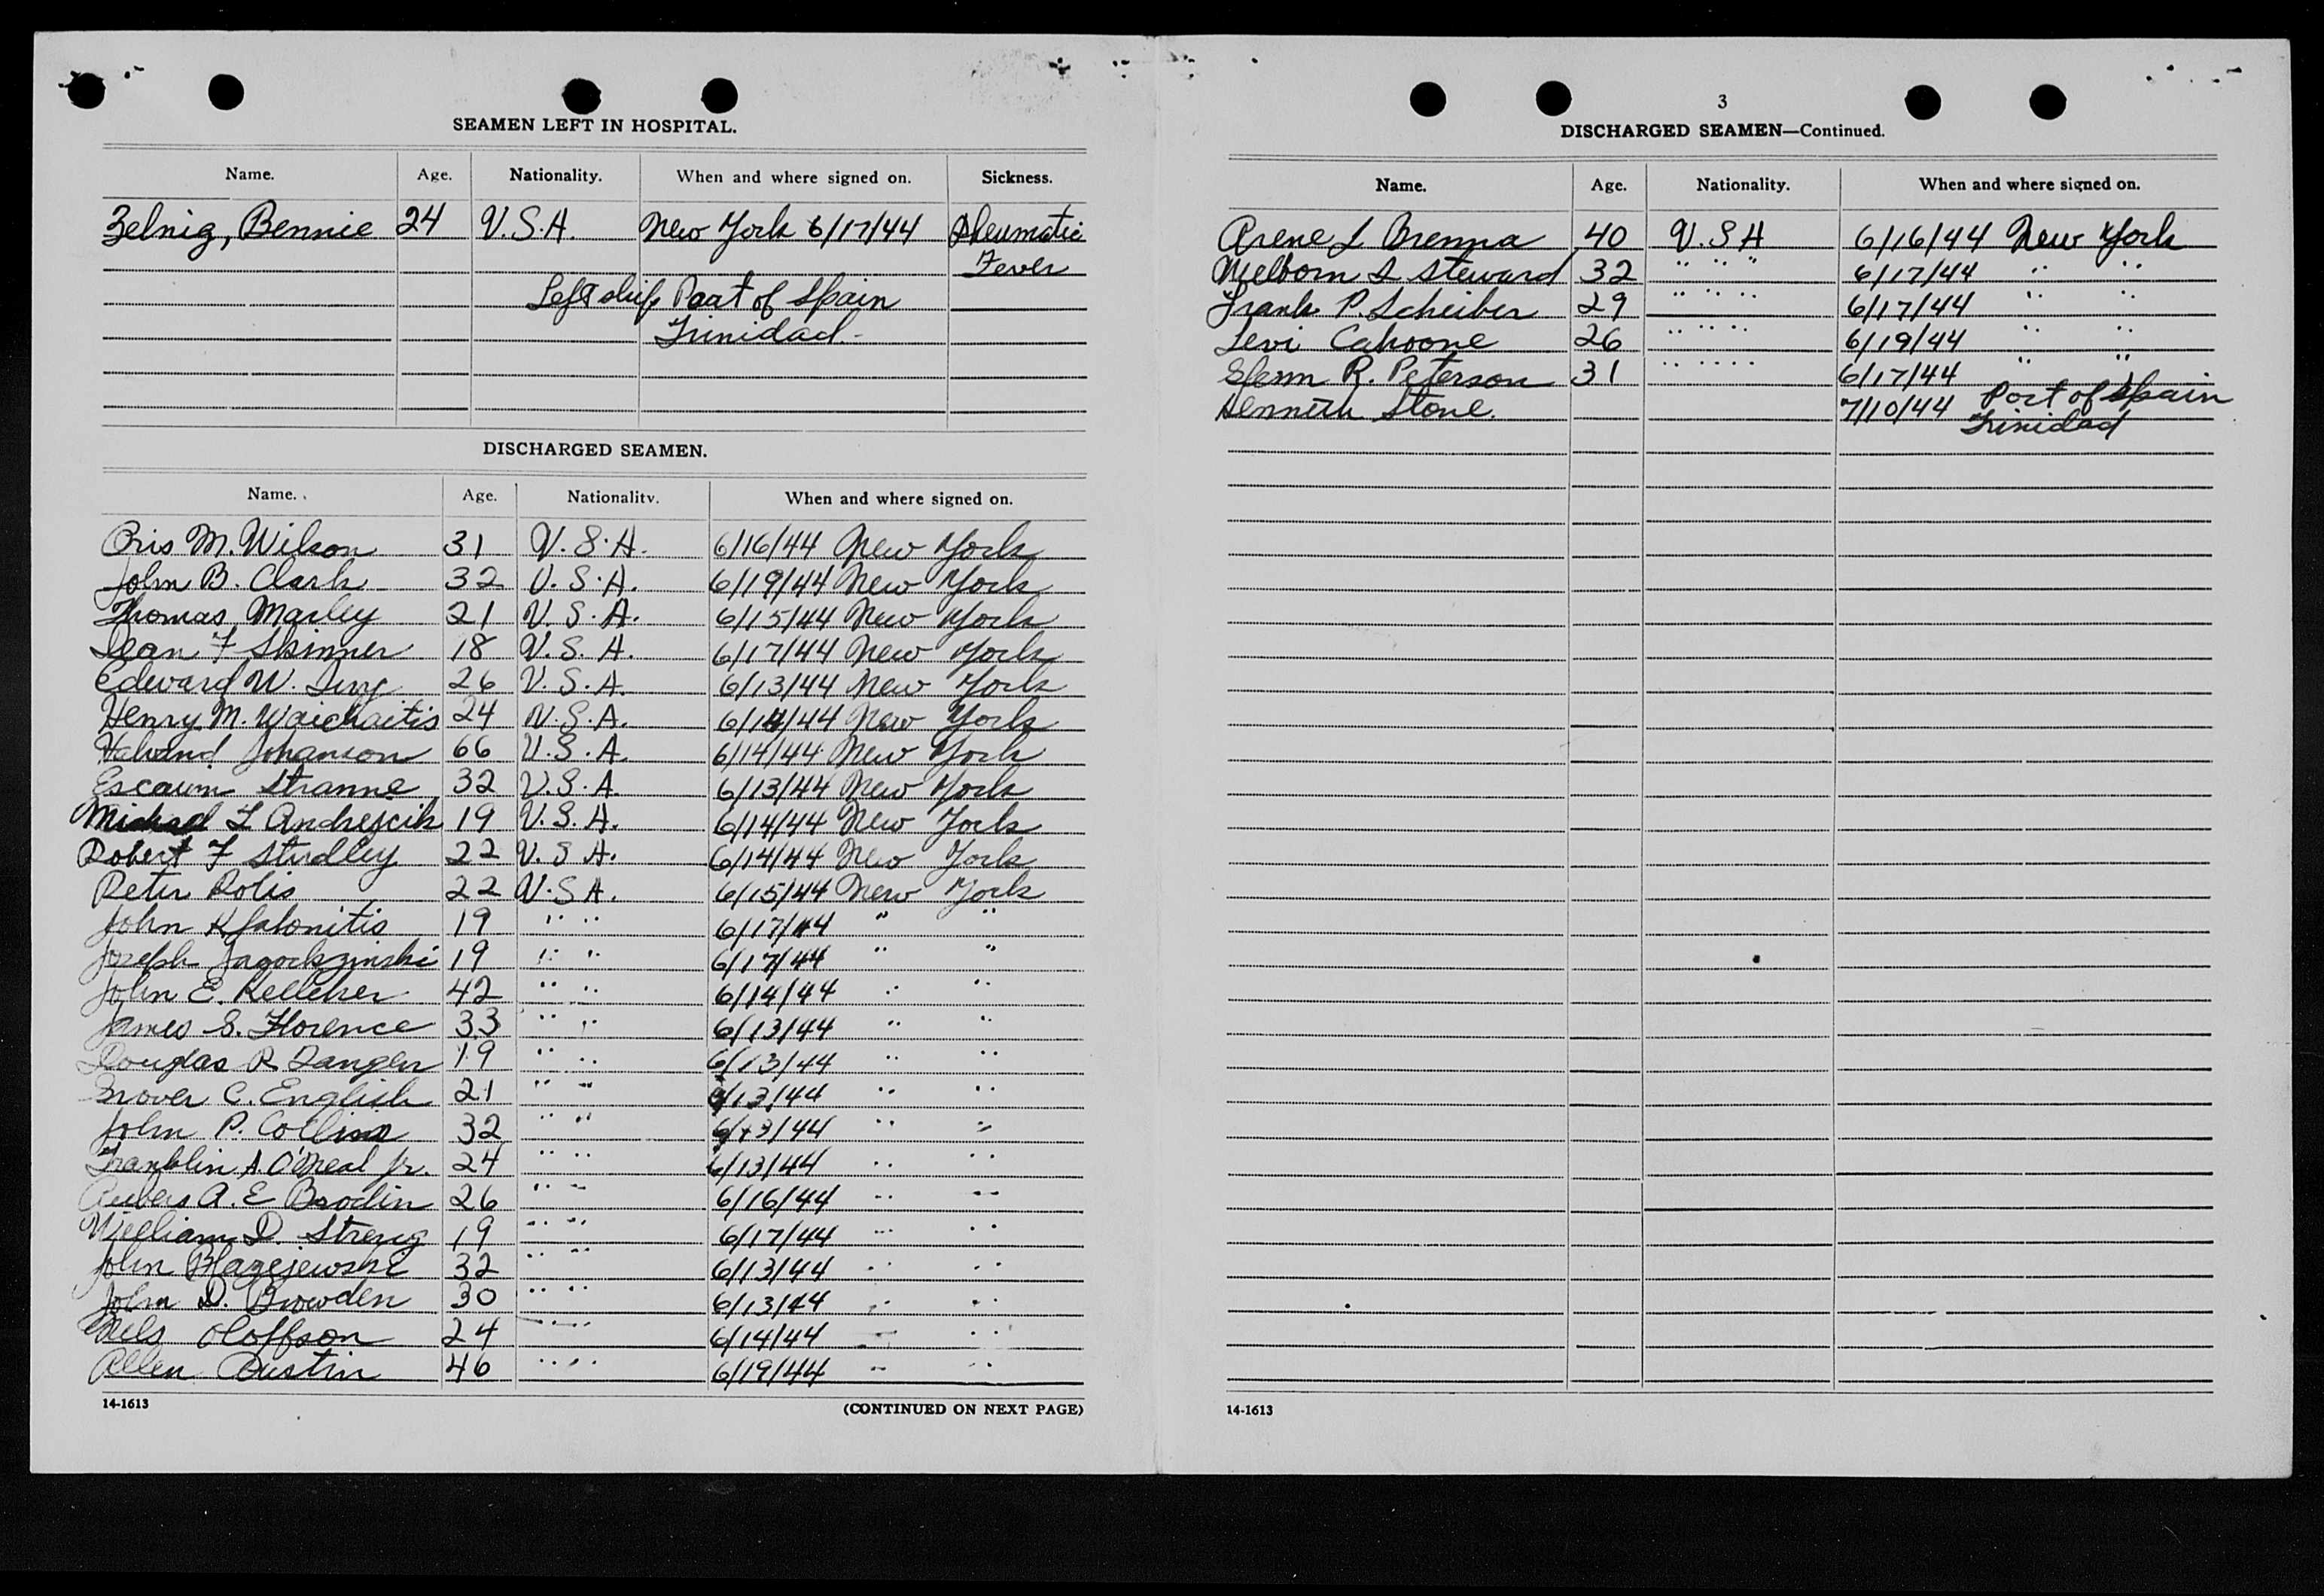 SEAMEN LEFT IN HOSPITAL.
Name. Age. Nationality. When and where signed on. Sickness.
Zelnig, Bennie 24 U.S.A. New York 6/17/44 Rheumatic
Fever
Left ship Poat of Spain
Trinidad.-
DISCHARGED SEAMEN.
Name. Age. Nationality. When and where signed on.
Oris M. Wilson 31 U.S.A. 6/16/44 New York
John B. Clark 32 U.S.A. 6/19/44 New York
Thomas Marley 21 U.S.A. 6/15/44 New York
Dean F Skinner 18 U.S.A. 6/17/44 New York
Edward W. 26 U.S.A. 6/13/44 New York
Henry M. Waichaitis 24 U.S.A. 6/14/44 New York
Johanson 66 U.S.A. 6/14/44 New York
Stranne 32 U.S.A. 6/13/44 New York
Michael F Andrejcik 19 U.S.A. 6/14/44 New York
Robert F Studley 22 U.S A. 6/14/44 New York
Peter Polis 22 U.S A. 6/15/44 New York
John Kfalonitis 19 " " 6/17/44 " "
Joseph 19 " " 6/17/44 " "
John E. Kelleher 42 " " 6/14/44 " "
James S. Florence 33 " " 6/13/44 " "
Douglas R Langer 19 " " 6/13/44 " "
Grover C. English 21 " " 6/13/44 " "
John P. Collins 32 " " 6/13/44 " "
Franklin A. O'Neal Jr. 24 " " 6/13/44 " "
A. E Brodin 26 " " 6/16/44 " "
William D. Streng 19 " " 6/17/44 " "
John Blazejewski 32 " " 6/13/44 " "
John D. Browden 30 " " 6/13/44 " "
Nels Oloffson 24 " " 6/14/44 " "
Allen Austin 46 " " 6/19/44 " "
14-1613 (CONTINUED ON NEXT PAGE)
3
DISCHARGED SEAMEN—Continued.
Name. Age. Nationality. When and where signed on.
Arene L Brenna 40 U.S A 6/16/44 New York
Welborn S Steward 32 " " " 6/17/44 " "
Frank P. Scheiber 29 " " " 6/17/44 " "
Levi Cahoone 26 " " " 6/19/44 " "
Glenn R. Peterson 31 " " " 6/17/44 " "
Kenneth Stone. 7/10/44 Port of Spain
Trinidad
14-1613